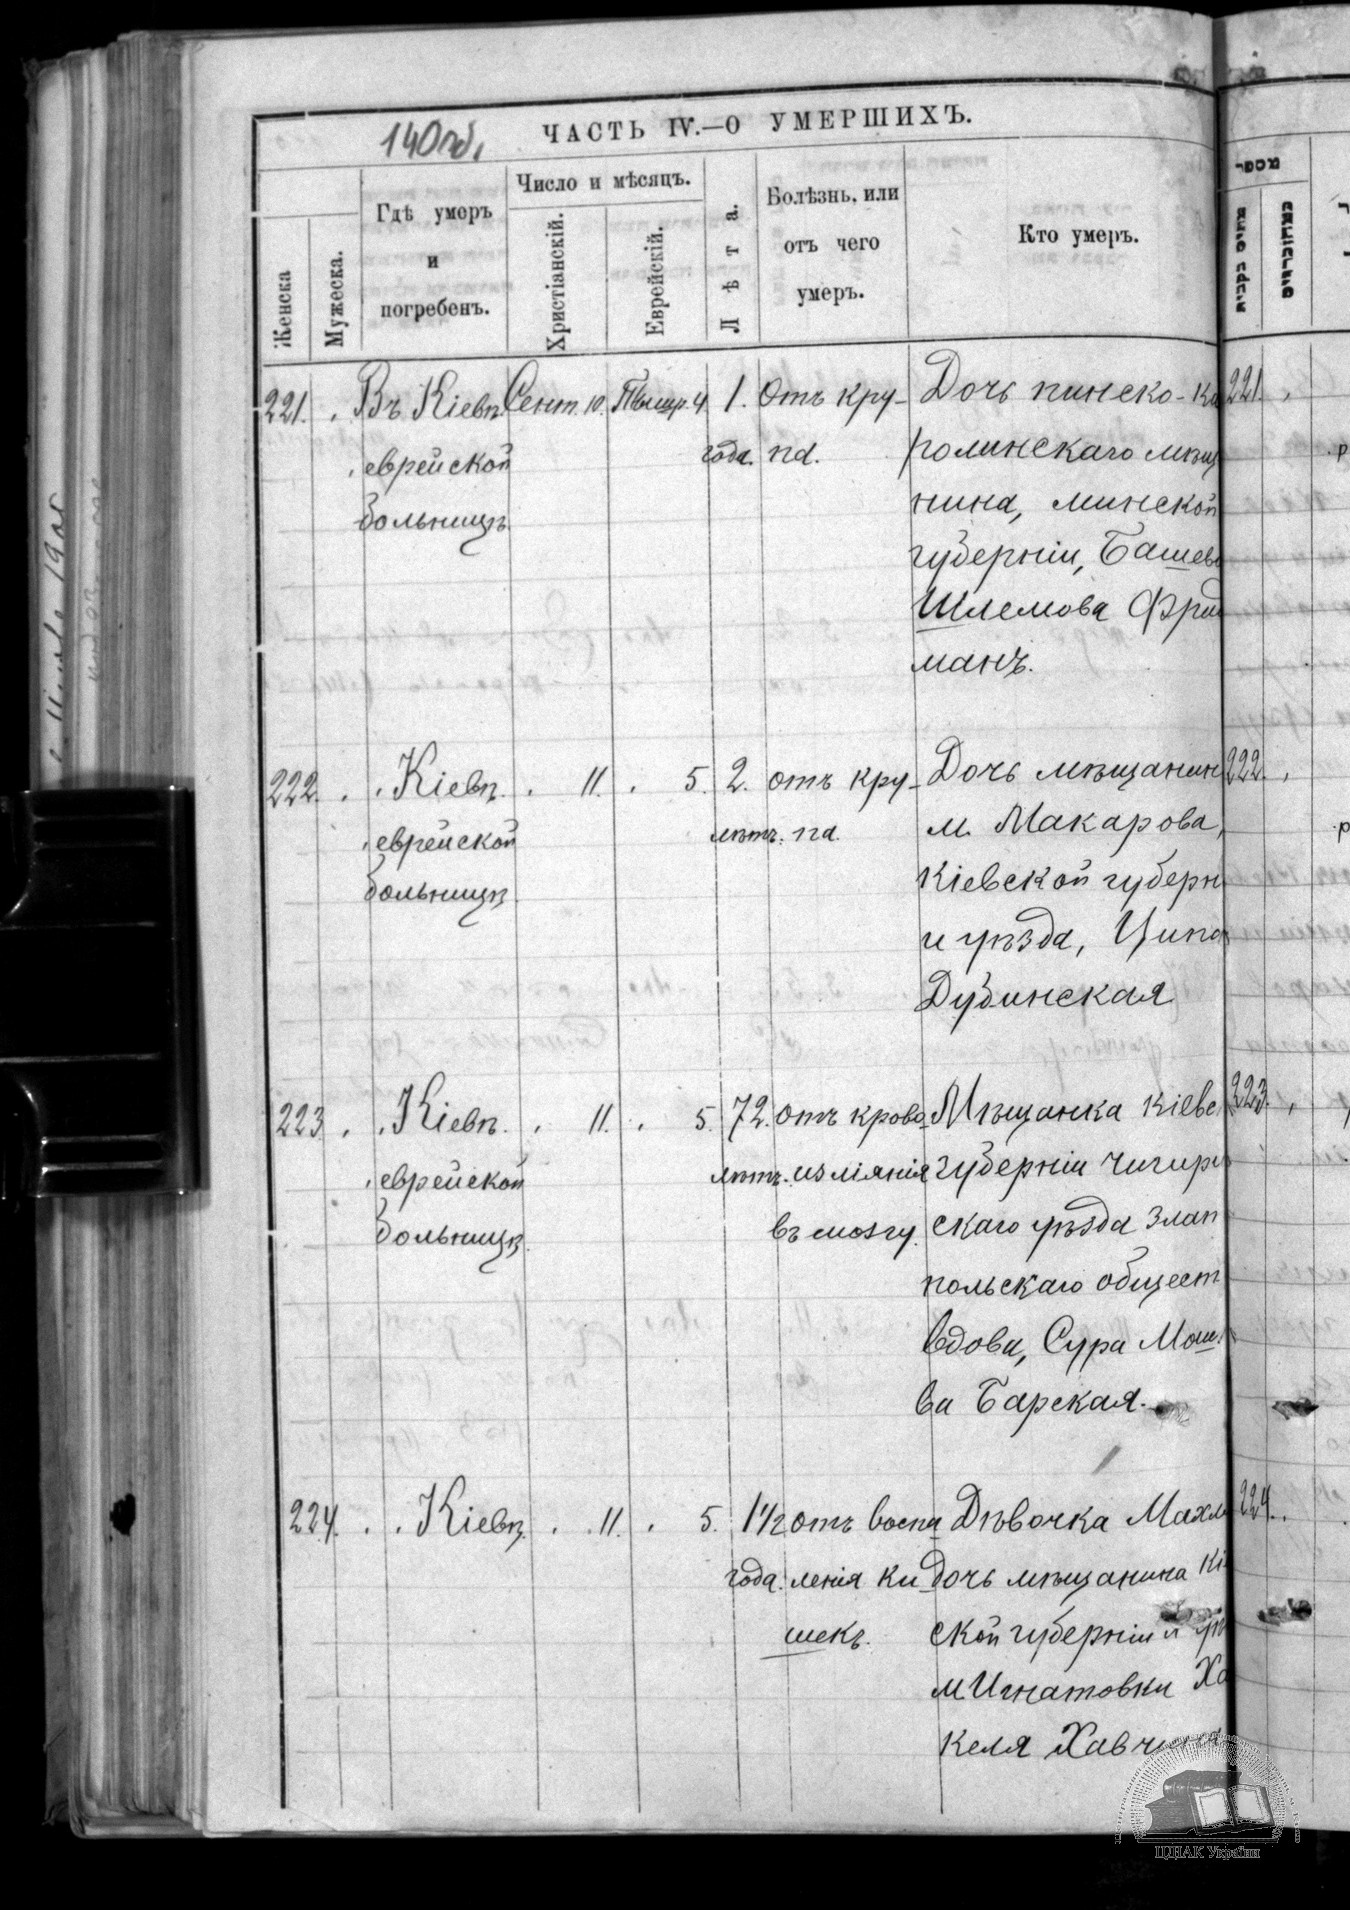 140об.
ЧАСТЬ IV.—О УМЕРШИХЪ.
Женска
Мужеска.
Гдѣ умеръ
и
погребенъ.
Число и мѣсяцъ.
Христіанскій.
Еврейскій.
Лѣта.
Болѣзнь, или
отъ чего
умеръ.
Кто умеръ.
221. Въ Кіевѣ Сент. 10. Тишр. 4 1. отъ кру- Дочь пинско-ка 221.
еврейской года. па. ролинскаго мѣща
больницѣ нина, минской
губерніи, Башева
Шлемова Фрид
манъ.
222. Кіевѣ. 11. 5. 2. отъ кру- Дочь мѣщанин 222.
еврейской лѣтъ. па м. Макарова,
больницѣ Кіевской губерн
и уѣзда, Ципа
Дубинская
223. Кіевѣ. 11. 5. 72. отъ крово- Мѣщанка Кіевс 223.
еврейской лѣтъ. изліянія губерніи Чигири
больницѣ. въ мозгу. скаго уѣзда Злап
польскаго общест
вдова, Сура Мош
ва Барская.
224. Кіевѣ. 11. 5. 1 1/2 отъ воспа Дѣвочка Махл 224.
года. ленія ки- дочь мѣщанина Кі
шекъ. ской губерніи и уѣ
м. Игнатовки Ха
келя Хавчина
ЦДІАК України